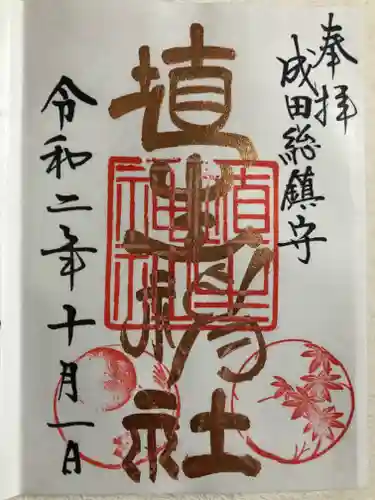 奉拝
成田総鎮守
埴生神社
令和二年十月一日